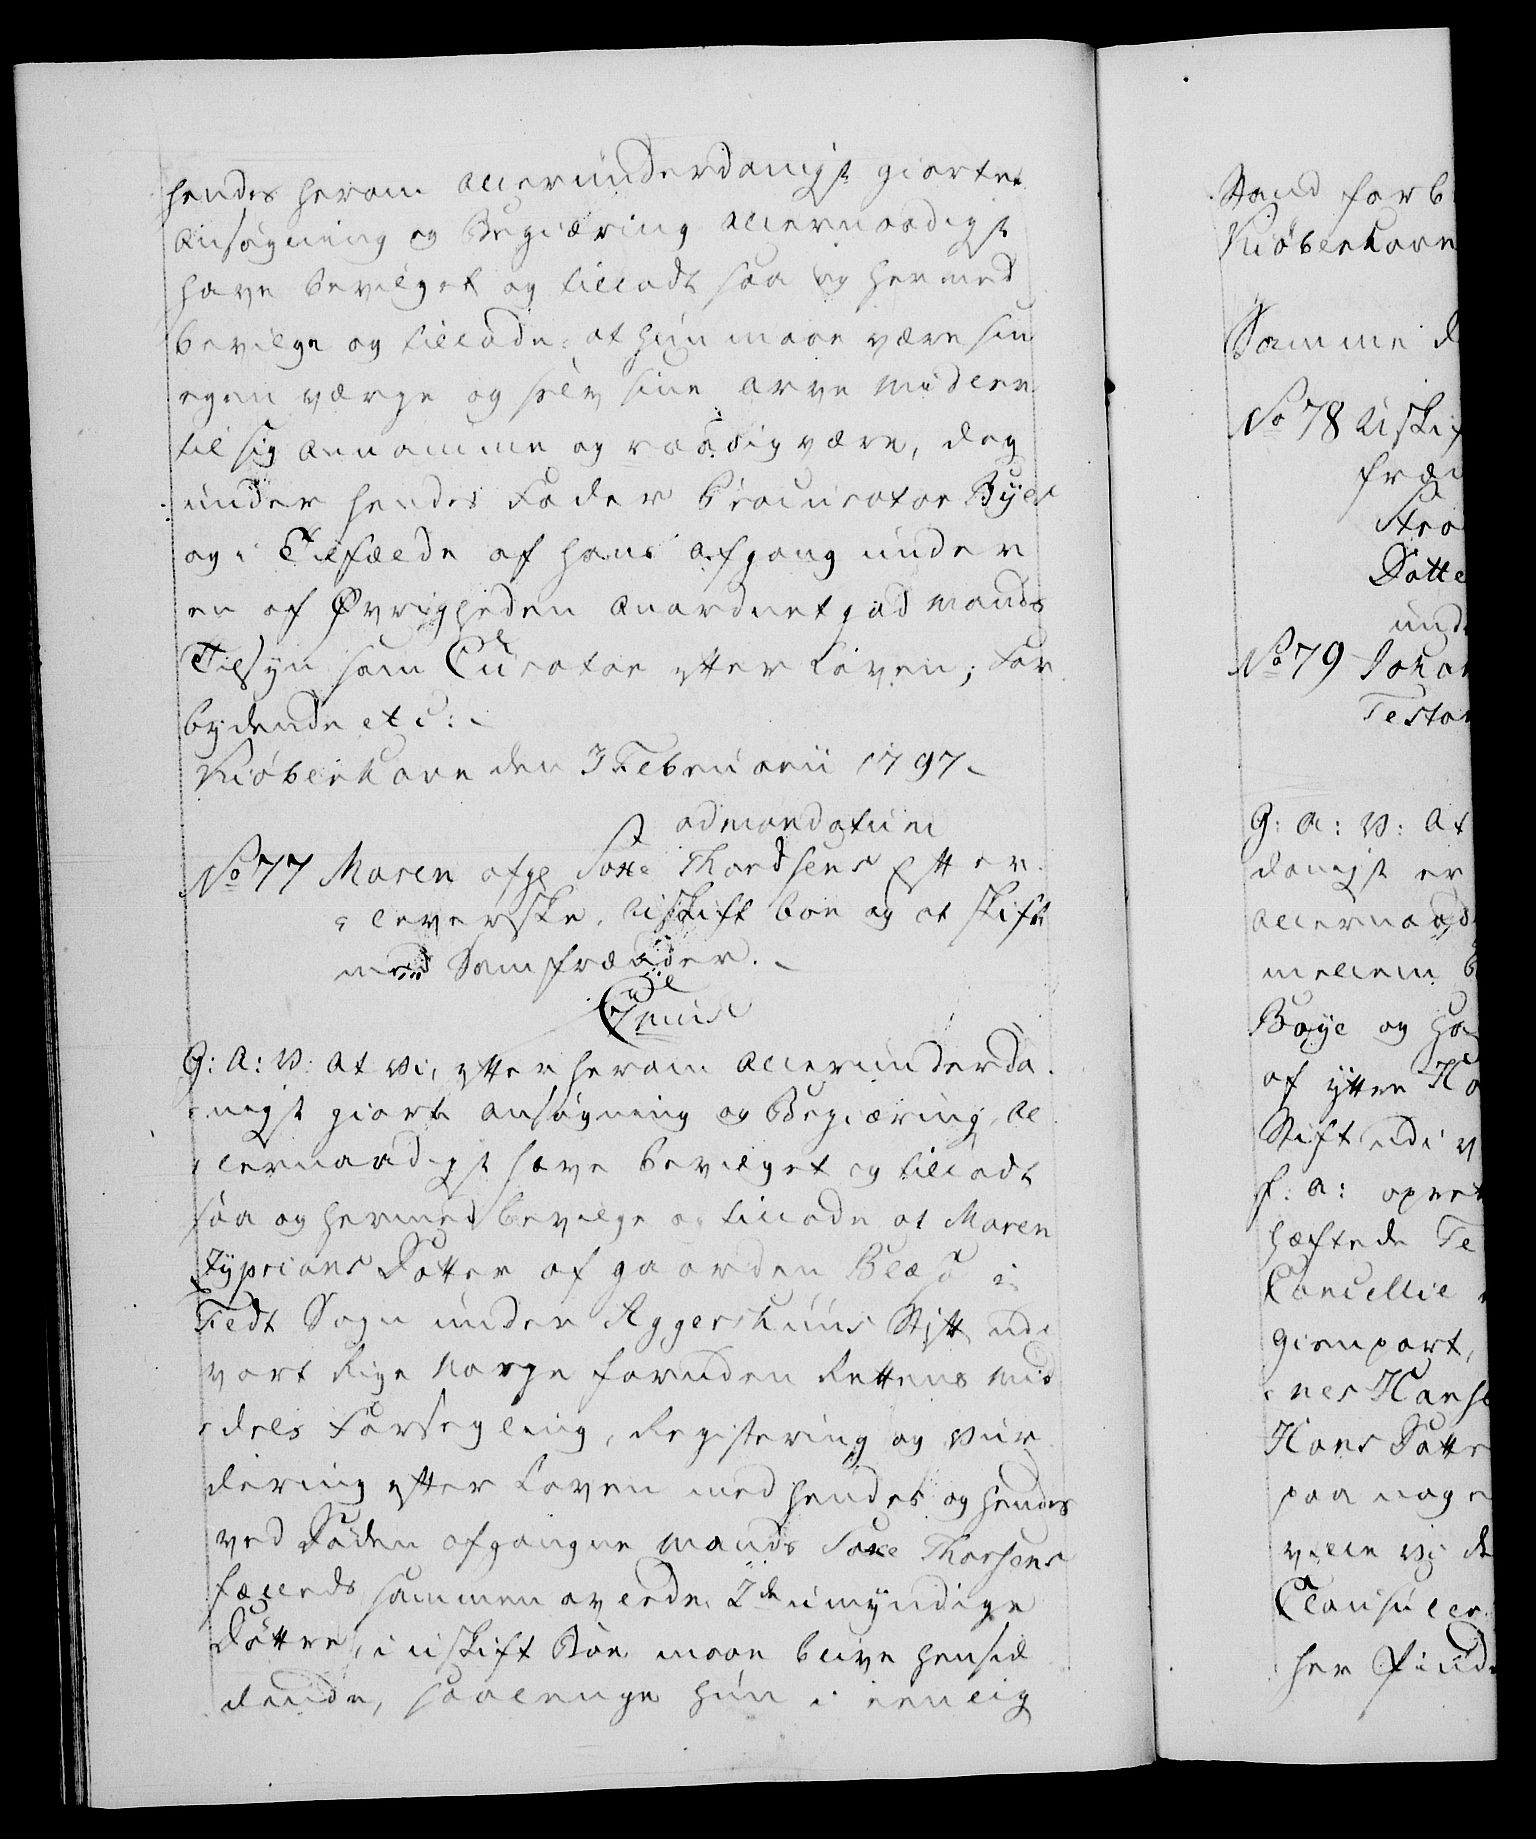 hendes herom allerunderdanigst giorte
Ansøgning og Begiæring allernaadigst
have bevilget og tilladt saa og hermed
bevilge og tillade: at hun maae være sin
egen værge og selv sine arve midler
til sig annamme og raadig være, dog
under hendes Fader Procurator Byes
og i Tilfælde af hans Afgang under
en af Øvrigheden anordnet god Mands
Tilsyn som Curator efter Loven; For
bydende etc:
Kiøbenhavn den 3 Februarii 1797.
ad mandatum
No 77 Maren afg: Thordsens Efter
leverske, Uskift boe og at skifte
med Samfrænder.
G: A: V: At Vi, efter herom allerunderda
nigst giorte Ansøgning og Begiæring, al
lernaadigst have bevilget og tilladt
saa og hermed bevilge og tillade at Maren
Zyprians Datter af gaarden i
Sogn under Aggershuus Stift udi
vort Rige Norge foruden Rettens Mid
dels Forsegling, Registering og Vur
dering efter Loven med hendes og hendes
ved Døden afgangne Mands Thorsens
fælleds sammen avlede 2de umyndige
Døttre, i uskift Boe maae blive hensid
dende, saalenge hun i eenlig
Stand forb
Kiøbenhavn
Samme d
No 78 Uskif
fræ
Datte
und
No 79 Johan
Testa
G: A: V: At
danigst er
allernaad
mellem
Boye og ha
af ytre Ho
Stift udi v
s: a: opret
hæftede Te
Cancellie
Gienpart,
nes Hanse
Hans Datte
paa nog
ville Vi d
Clausuler
her finde